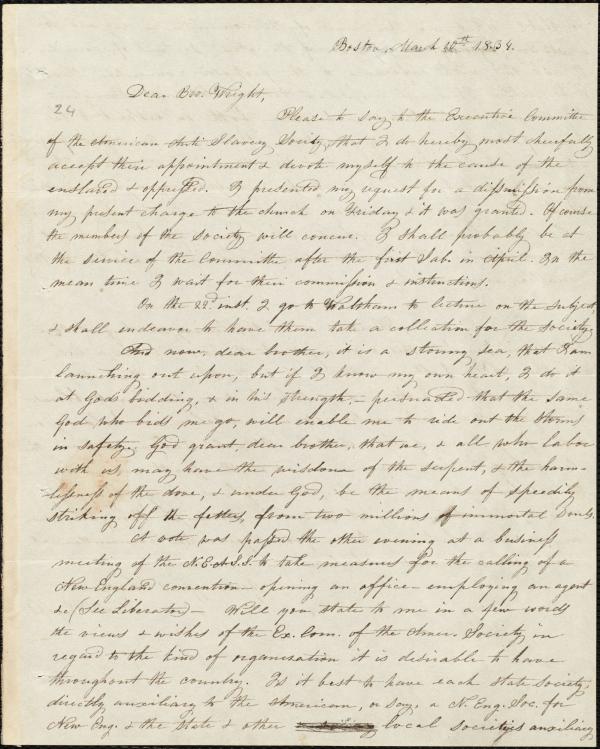 Boston, March 10th 1834.
Dear Bro. Wright,
24
Please to say to the Executive Committee
of the American Anti Slavery Society, that I do hereby most cheerfully
accept their appointment & devote myself to the cause of the
enslaved & oppressed. I presented my request for a dismission from
my present charge to the church on Friday & it was granted. Of course
the members of the society will concur. I shall probably be at
the service of the Committee after the first Sab. in April. In the
mean time I wait for their commission & instructions.
On the 22d inst. I go to Waltham to lecture on the subject,
& shall endeavor to have them take a collection for the Society.
And now, dear brother, it is a stormy sea, that I am
launching out upon, but if I know my own heart, I do it
at Gods bidding, & in his strength, – persuaded that the same
God who bids me go, will enable me to ride out the storms
in safety. God grant, dear brother, that we, & all who labor
with us may have the wisdom of the serpent, & the harm-
lessness of the dove, & under God, be the means of speedily
striking off the fetters, from two millions of immortal souls.
A vote was passed the other evening at a business
meeting of the N.E.A.S.S. to take measures for the calling of a
New England convention – opening an office – employing an agent
&c (See Liberator) – Will you state to me in a few words
the views & wishes of the Ex. Com. of the Amer. Society in
regard to the kind of organisation it is desirable to have
throughout the country. Is it best to have each state society,
directly auxiliary to the American, or say, a N. Eng. Soc. for
New Eng. & the state & other local societies auxiliary